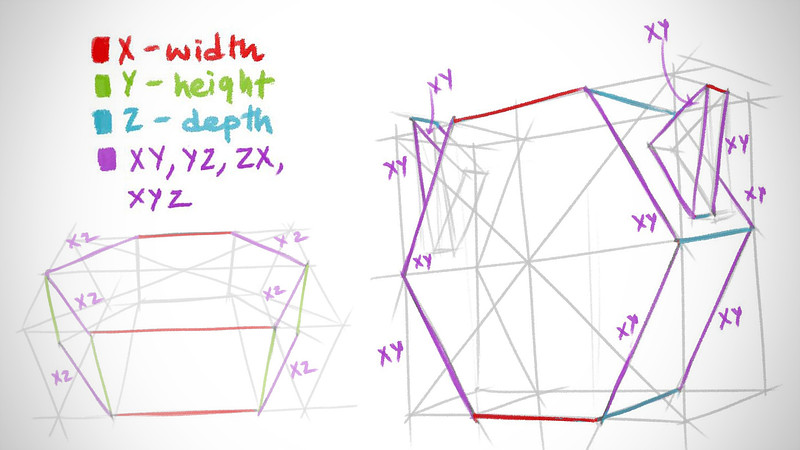 X - width
Y - height
Z - depth
XY, YZ, ZX,
XYZ
XY
XY
XY
XY
XY
XY
XY
XY
XY
XY
XZ
XZ
XZ
XZ
XZ
XZ